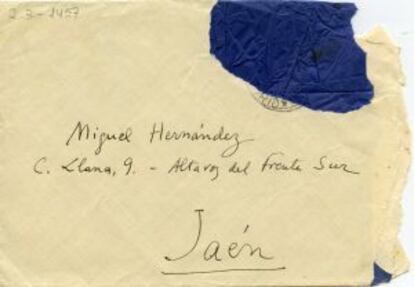 2-3-1937
Miguel Hernández
C. Llana, 9. - Altavoz del Frente Sur
Jaén